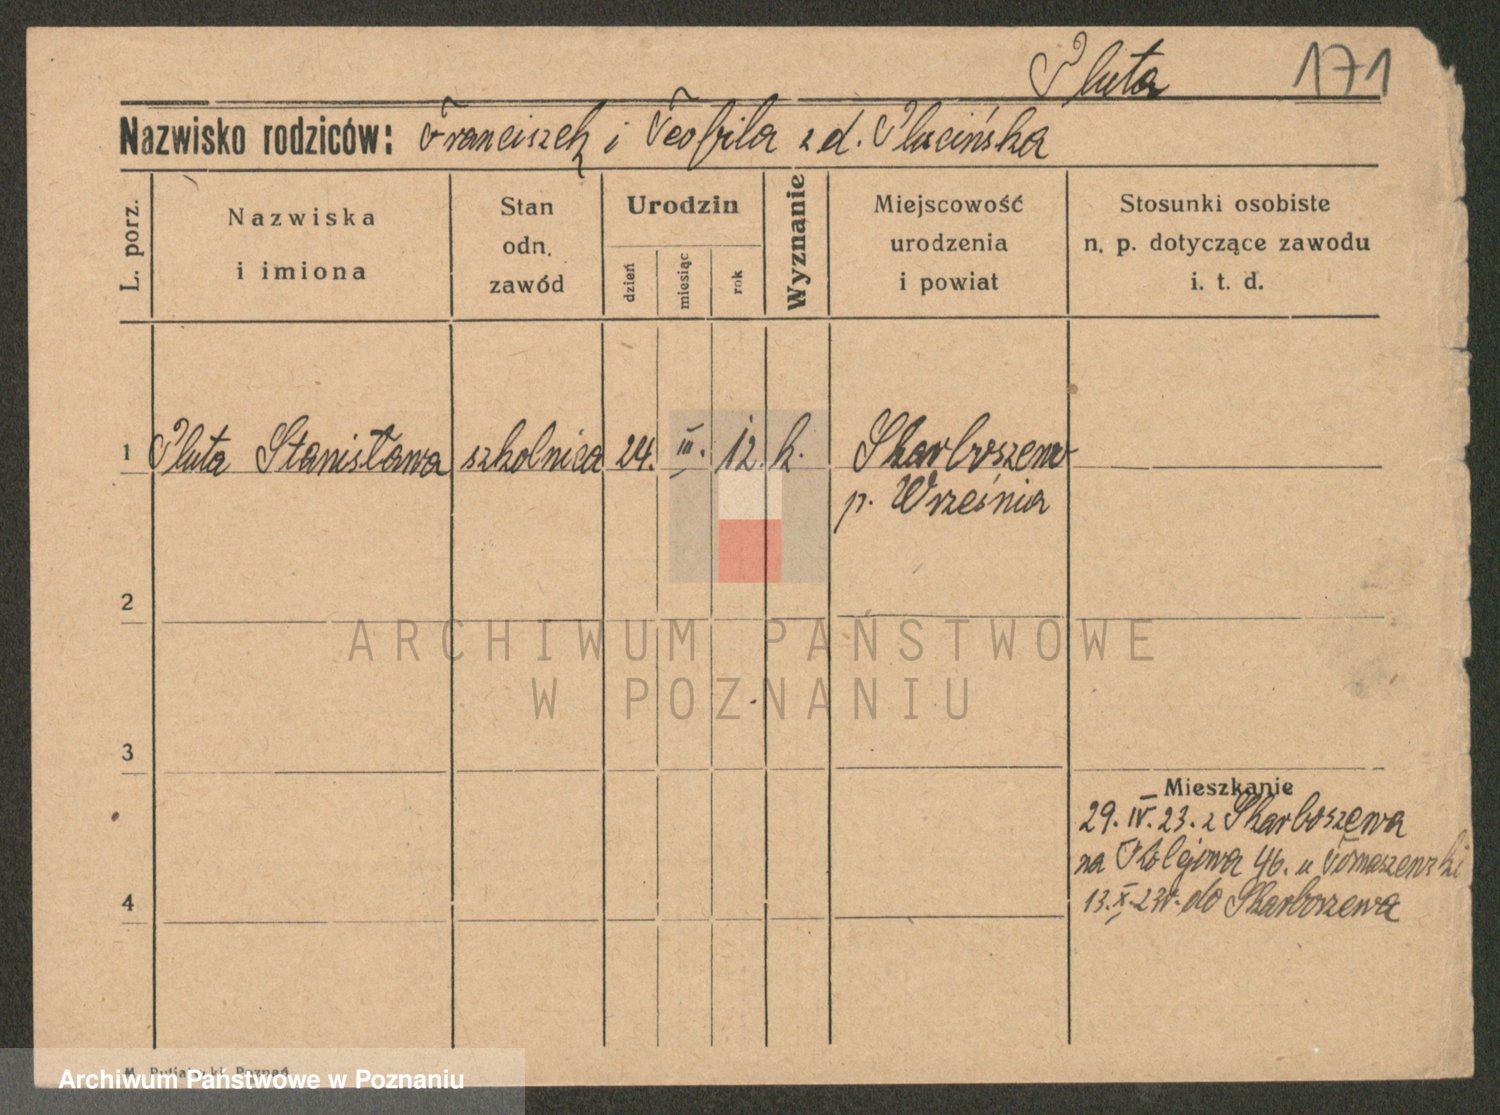 Pluta 171
Nazwisko rodziców: Franciszek i Teofila z d. Plucińska
L. porz.
Nazwiska
i imiona
Stan
odn.
zawód
Urodzin
dzień
miesiąc
rok
Wyznanie
Miejscowość
urodzenia
i powiat
Stosunki osobiste
n. p. dotyczące zawodu
i. t. d.
1 Pluta Stanisława szkolnica 24. III. 12. k. Skarboszewo
p. Września
2
ARCHIWUM PAŃSTWOWE
W POZNANIU
3
Mieszkanie
29. IV. 23. z Skarboszewa
na Kolejowa 46. u Tomaszewski
4
13. X. 23r. do Skarboszewa
Poznań
Archiwum Państwowe w Poznaniu